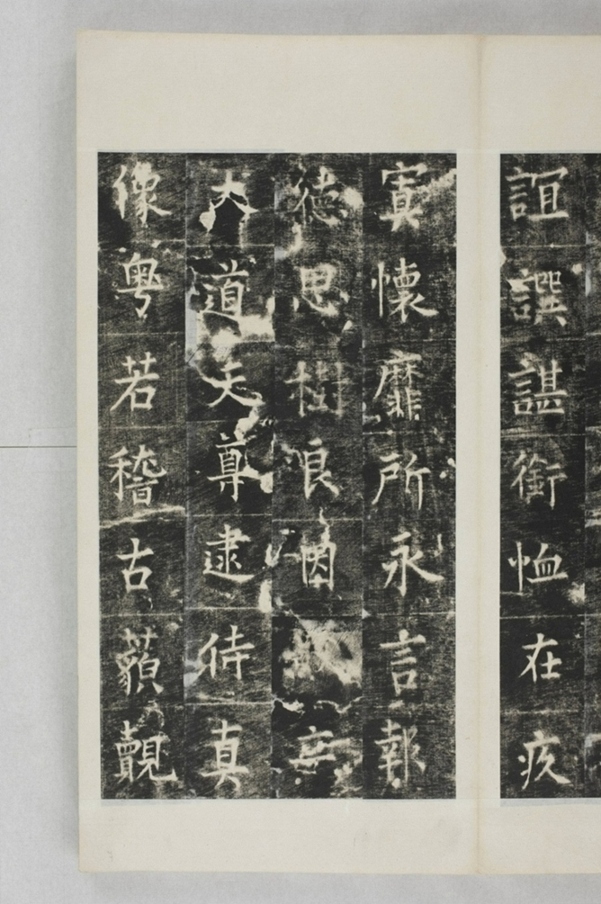 誼譔諶銜恤在疚
寘懷靡所永言報
德思樹良因
大道天尊逮侍真
像粵若稽古藐覿